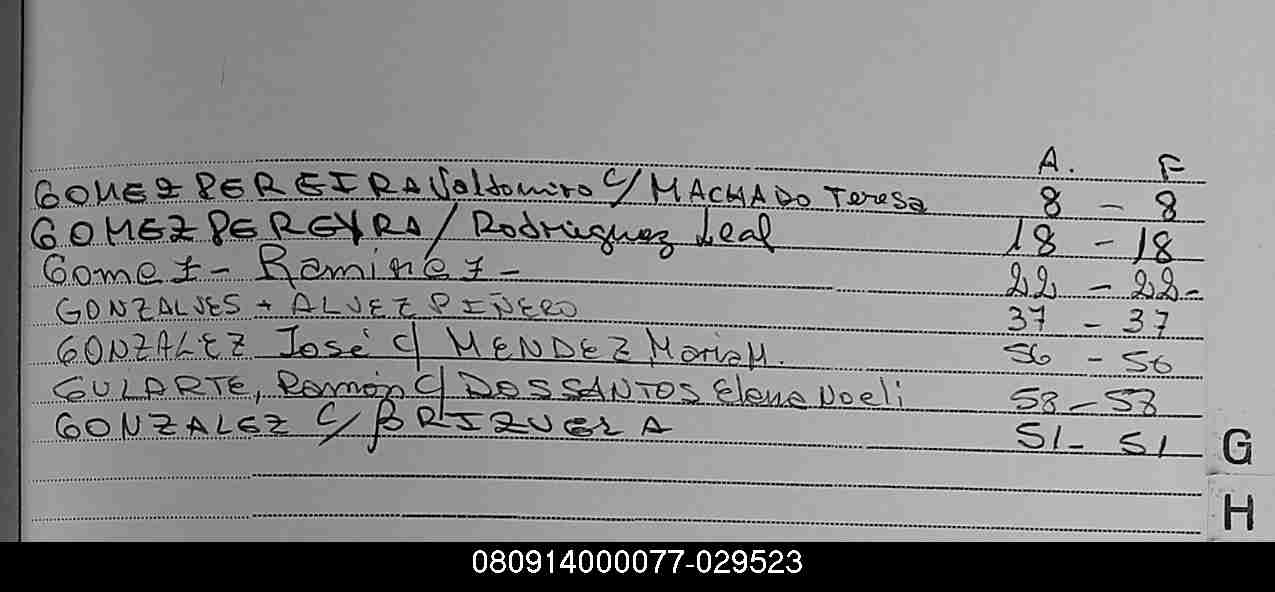 A. F
GOMEZ PEREIRA Valdomiro C/ MACHADO Teresa 8 - 8
GOMEZ PEREYRA / Rodriguez Leal 18 - 18
Gomez - Ramirez - 22 - 22-
GONZALVES + ALVEZ PIÑERO 37 - 37
GONZALEZ José c/ MENDEZ Maria M. 56 - 56
GULARTE, Ramón C/ DOS SANTOS Elena Noeli 58 - 58
GONZALEZ C/ BRIZUELA 51 - 51
G
H
080914000077-029523